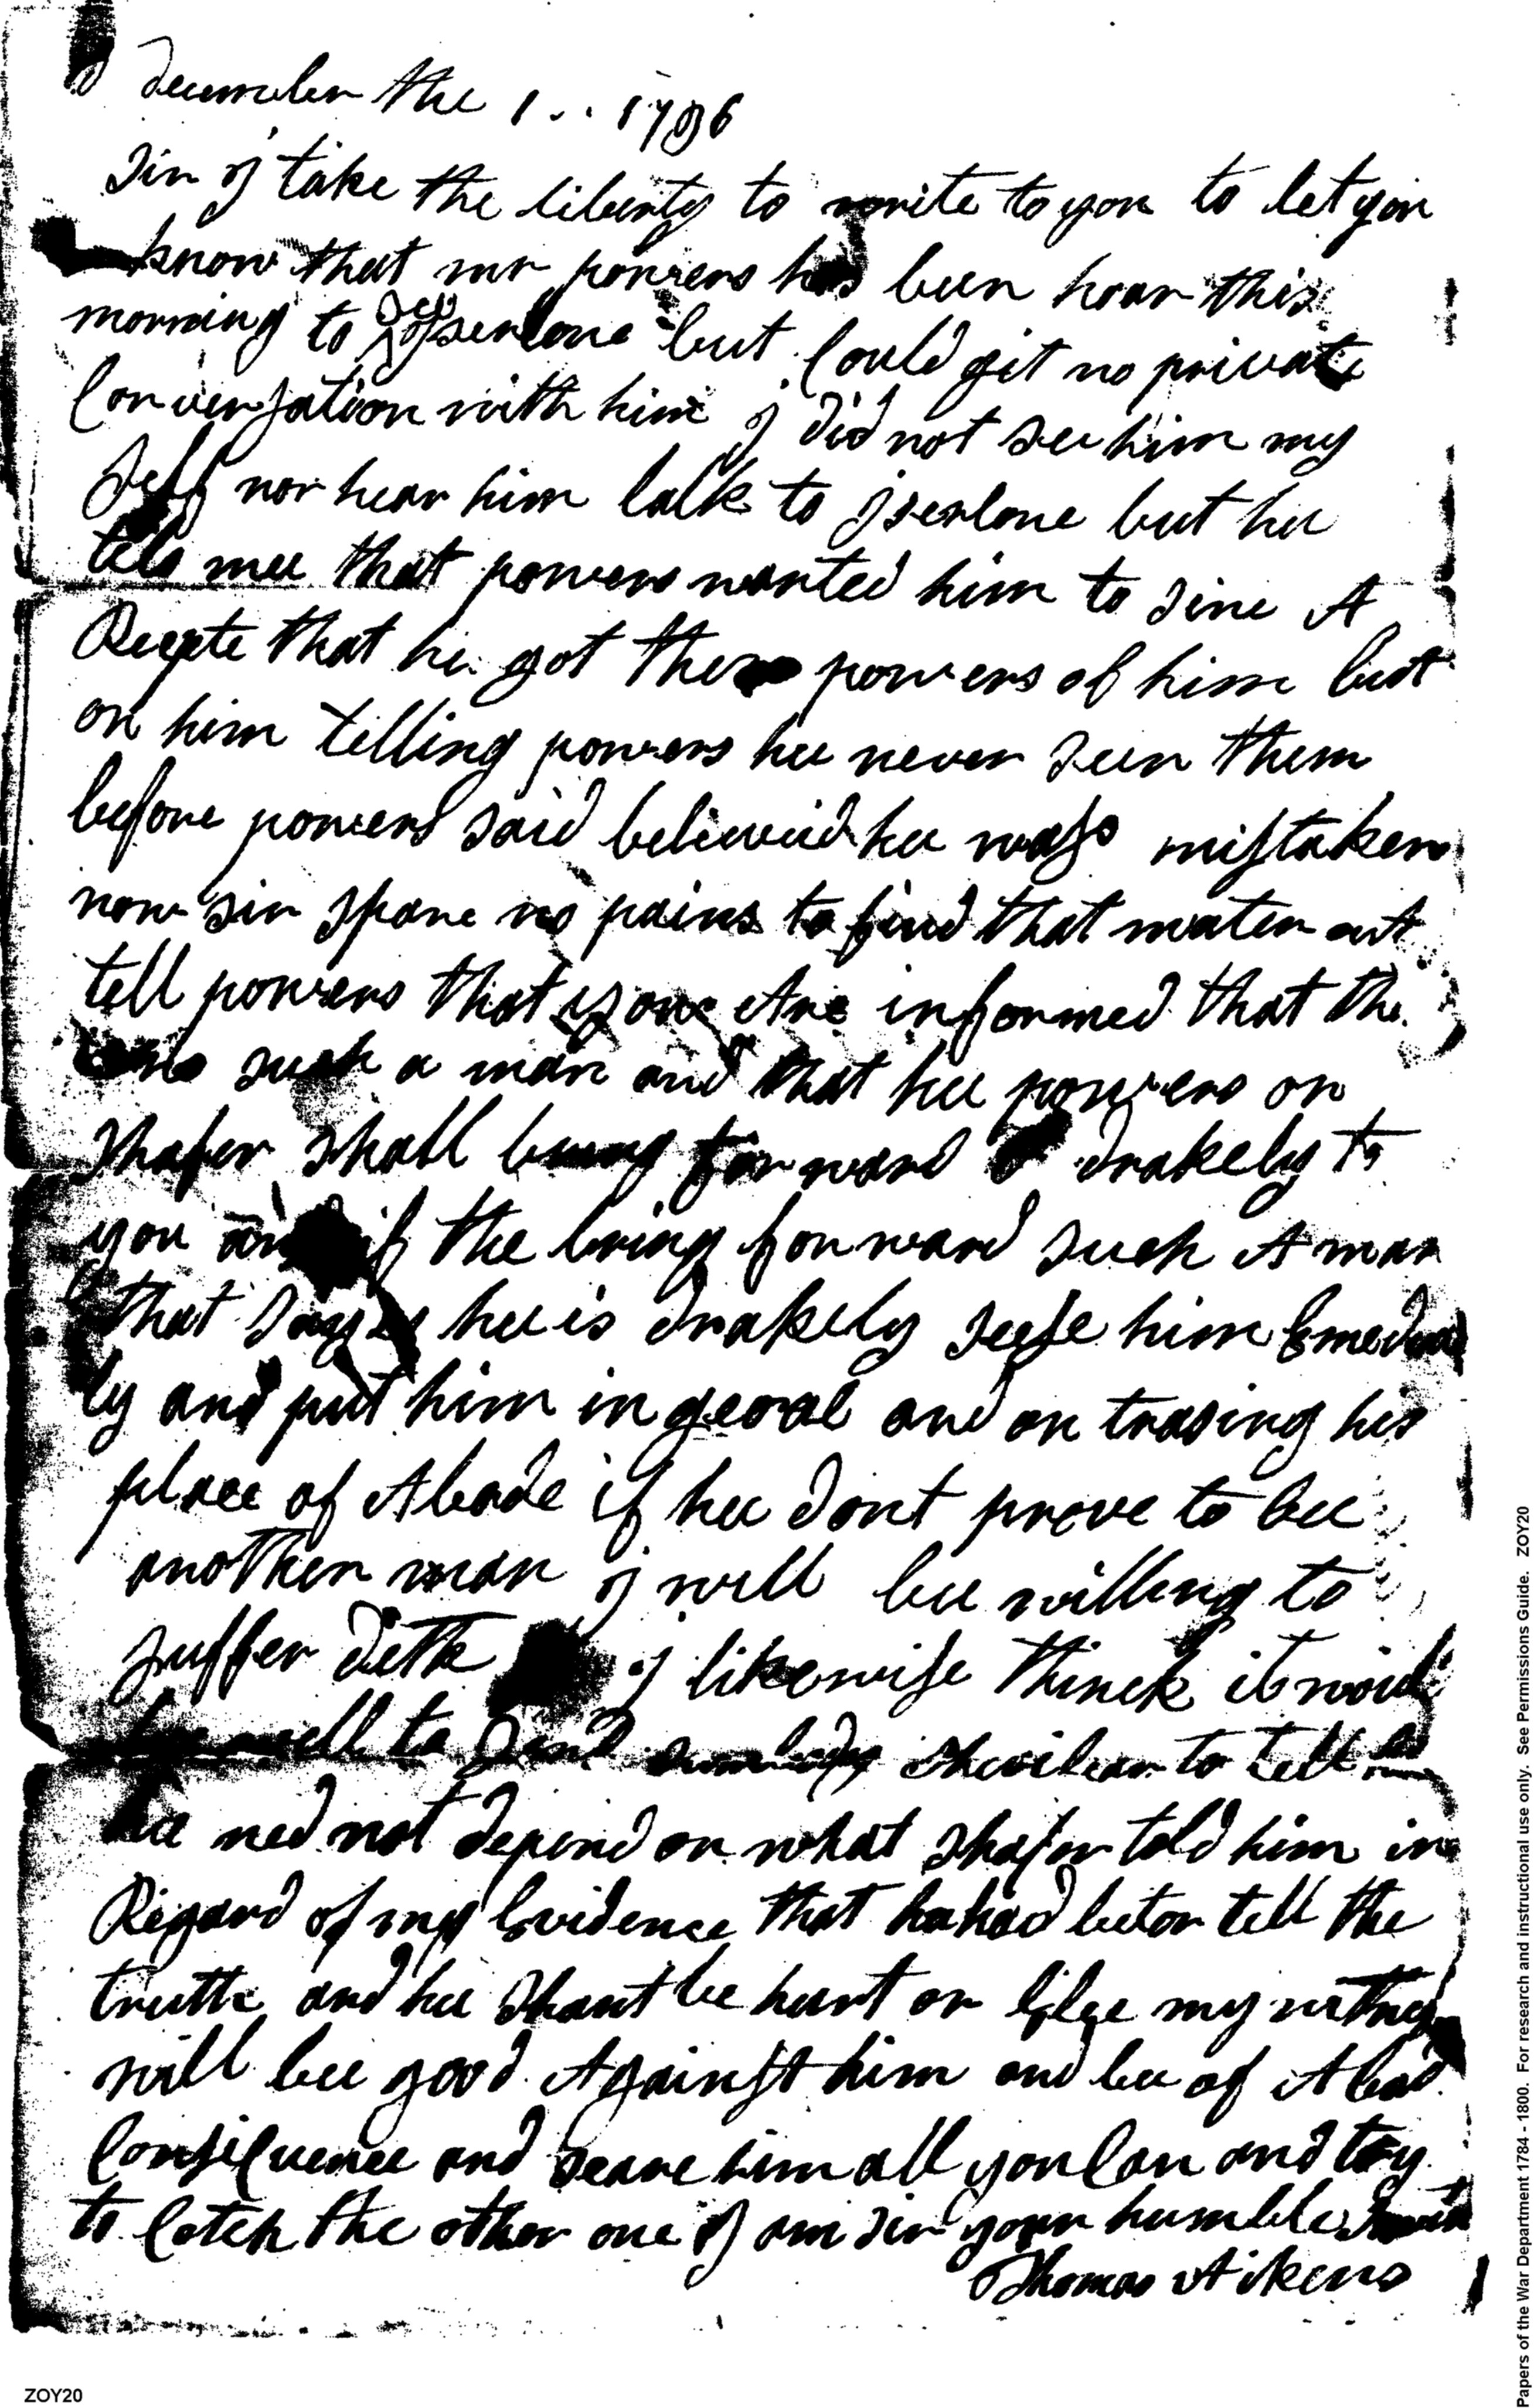 December the 1 . . 1786
Sir j take the liberty to write to you to let you
know that mr powers has been hear this
morning to See jserlone but Could git no private
Conversation with him j did not see him my
Self nor hear him talk to jserlone but hee
tels mee that powers wanted him to sine A
Recpte that he got thes powers of him but
on him telling powers hee never seen them
before powers said believeid hee wass mistaken
now sir spare no pains to find that mater out
tell powers that you Are informed that the
such a man and that hee powers or
Shafer shall bring forward drakely to
you and if the bring forward such A man
that Says hee is drakely seese him Emedia
ly and put him in geoal and on trasing his
place of Abode if hee dont prove to bee
another man j will bee willing to
suffer deth j likewise thinck it would
be well to Send sumbody to tell
hee ned not depend on what Shafer told him in
Regard of my Evidence that he had betor tell the
truth and hee Shant be hurt or Else my witnes
will bee good Against him and bee of A bad
Consequence and Scare him all you Can and try
to Catch the other one j am sir your humble
Thomas Aikens
Papers of the War Department 1784 - 1800. For research and instructional use only. See Permissions Guide. ZOY20
ZOY20